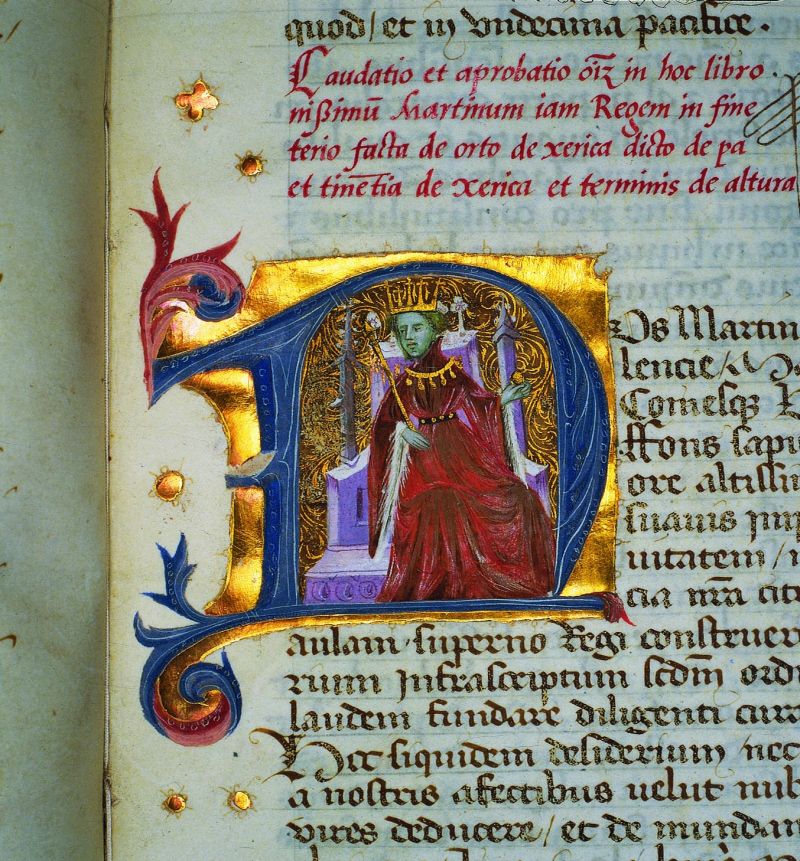 quod/ et in vndecima pacifice.
Laudatio et aprobatio õiz in hoc libro
nißimũ Martinum iam Regem in fine
terio facta de orto de xerica dicto de pa
et tinẽtia de xerica et terminis de altura
Nos Martin
lencie/
Comesq̃
ffons sapi
ore altissi
suauis
uitatem/
cia nr̃a
aulam superno Regi construer
rium infrascriptum scd̃m ordi
laudem fundare diligenti cura
Hec siquidem desiderium nec
a nostris afectibus uelut nub
vires deducere/ et de mundan